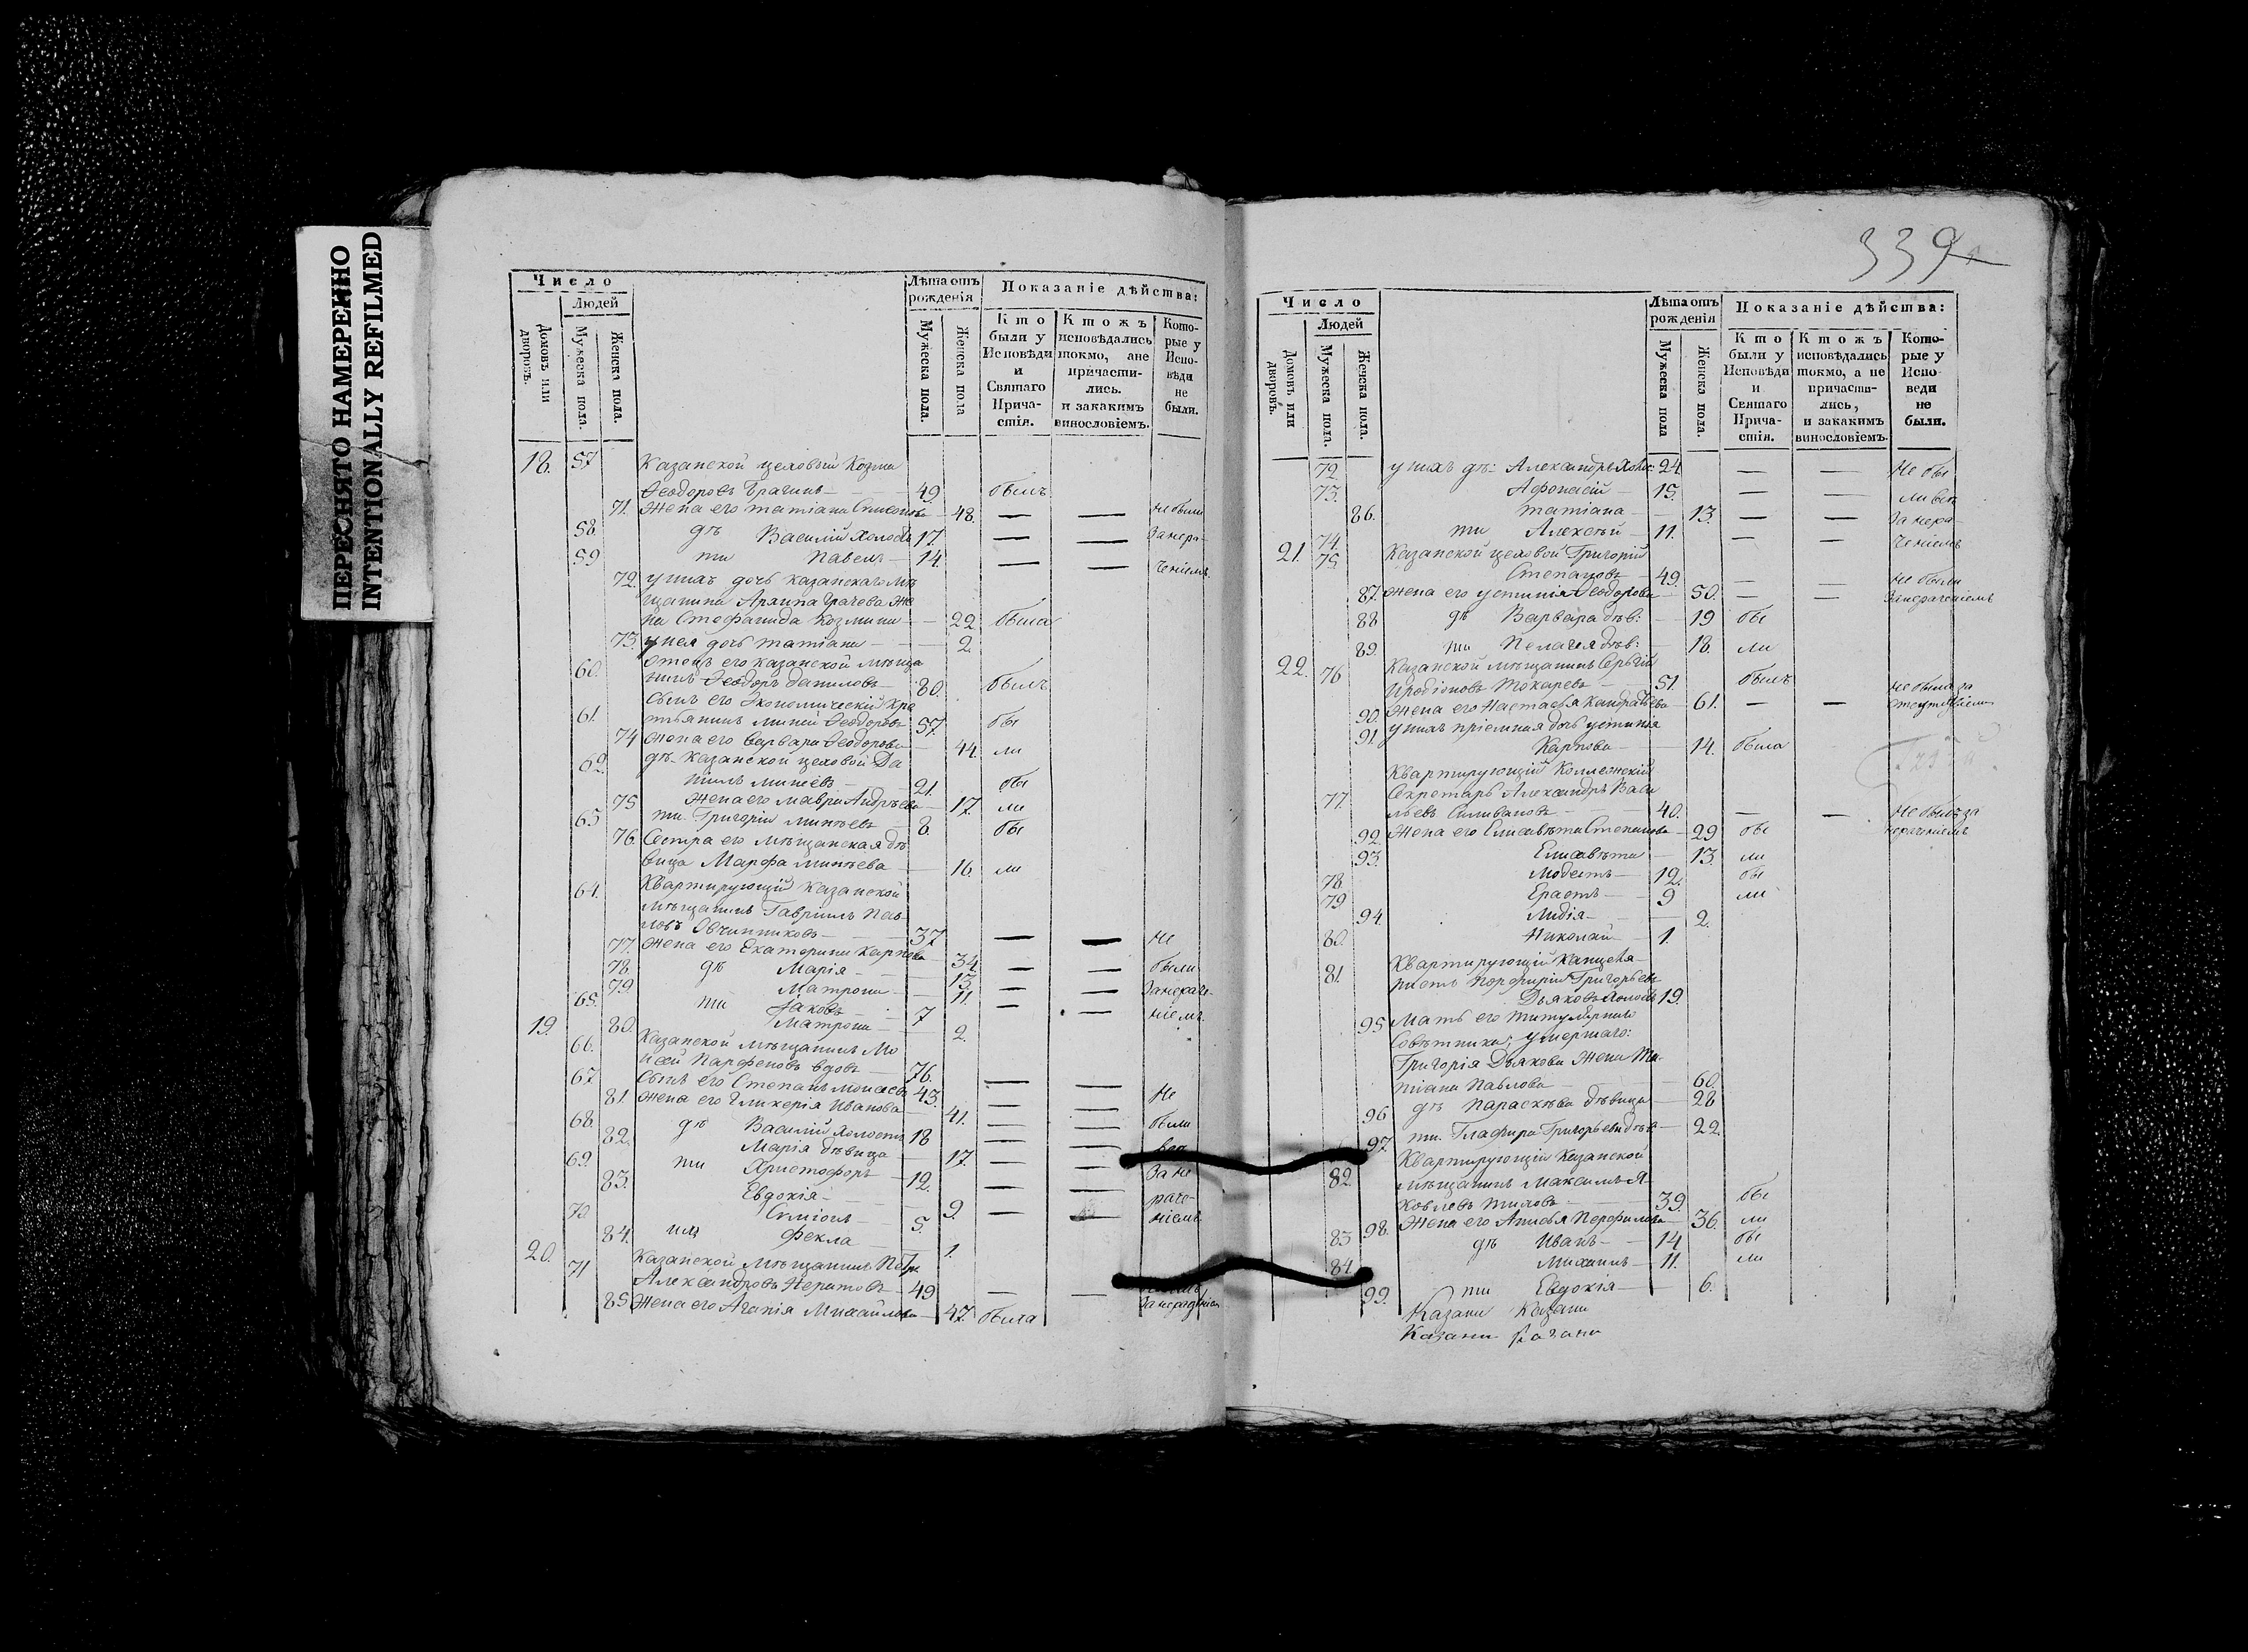 ПЕРЕСНЯТО НАМЕРЕННО
INTENTIONALLY REFILMED
Число
Людей
Домовъ или дворовъ.
Мужеска пола.
Женска пола.
Лѣта отъ рожденія
Мужеска пола.
Женска пола
Показаніе дѣйства:
Кто были у Исповѣди и Святаго Причастія.
Ктожъ исповѣдались токмо, а не причастились. и закакимъ винословіемъ.
Которые у Исповѣди не были.
18. 57 Казанской цеховый Козма
Ѳеодоровъ 49. былъ
71. Жена его Татіана 48. — — не были
58. дѣ Василій холостъ 17. — — Занера-
59 ти Павелъ 14. — — ченіемъ.
72. у нихъ дочь казанскаго мѣ
щанина Архипа Грачева Же
на Стефанида Козмина 22 была
73. у нея дочь Татіана 2.
60. отецъ его казанской мѣща
нинъ Ѳеодоръ Даниловъ 80. былъ
сынъ его Экономическій кре
61. стьянинъ Миней Ѳеодоровъ 57. бы
74 Жена его Варвара Ѳеодорова 44. ли
62. дѣ. Казанской цеховой Да
ніилъ Минеевъ 21. бы
75 Жена его Мавра Андреева 17. ли
63 ти. Григорій Минѣевъ 8. бы
76. Сестра его мѣщанская дѣ
вица Марфа Минѣева 16. ли
64. Квартирующій казанской
мѣщанинъ Гавріилъ Пав
ловъ Овчинниковъ 37 — — не
77. Жена его Екатерина Карпова 34. — — были
78. дѣ Марія 13. — — Занераче-
79. Матрона 11. — — ніемъ.
65. ти Іаковъ 7
80. Матрона 2.
19. 66. Казанской мѣщанинъ Мо
исей Парфеновъ вдовъ 76. — —
67. Сынъ его Степанъ Моисеевъ 43. — — Не
81. Жена его Гликерія Иванова 41. — — были
68. дѣ Василій холостъ 18 — —
82. Марія дѣвица 17. — — Зане
69. ти Христофоръ 12. — — раче-
83. Евдокія 9. — — ніемъ.
70. Симіонъ 5.
84. Фекла 1.
20. 71 Казанской мѣщанинъ Петръ
Александровъ 49 — —
85 Жена его Агапія Михайлова 47. была
339
Число
Людей
Домовъ или дворовъ.
Мужеска пола.
Женска пола.
Лѣта отъ рожденія
Мужеска пола
Женска пола.
Показаніе дѣйства:
Кто были у Исповѣди и Святаго Причастія.
Ктожъ исповѣдались токмо, а не причастились, и закакимъ винословіемъ.
Которые у Исповеди не были.
72. у нихъ дѣ: Александръ холос: 24. — — Не бы
73. Афонасій 15. — — ли всѣ
86. Татіана 13. — — Занера-
74. ти Алексѣй 11. — — ченіемъ
21. 75. Казанской цеховой Григорій
Степановъ 49. — — не были
87. Жена его Устинія Ѳеодорова 50. — — Занераченіемъ
88 дѣ Варвара дѣв: 19 бы
89. ти Пелагея дѣв: 18. ли
22. 76 Казанской мѣщанинъ Сергѣй
Иродіоновъ Токаревъ 51. былъ
90. Жена его Настасья Кондратьева 61. — — не была за отсутствіемъ
91. у нихъ пріемная дочь Устинія
Карпова 14. была
Квартирующій Коллежскій
77. Секретарь Александръ Васи
льевъ Силивановъ 40. — — не былъ за
92. Жена его Елисавета Степанова 29 бы нераченіемъ
93. Елисавѣта 13 ли
78. Модестъ 12. бы
79 Ерастъ 9 ли
94. Лидія 2.
80. Николай 1.
Квартирующій Канцеля-
81. ристъ Порфирій Григорьевъ
Дьяковъ холостъ 19.
95 Мать его Титулярнаго
Совѣтника, умершаго:
Григорія Дьякова Жена Та-
тіана Павлова 60.
96 дѣ Параскѣва дѣвица 28
97. ти. Глафира Григорьева дѣв. 22.
Квартирующій Казанской
82. мѣщанинъ Максимъ Я-
ковлевъ Титовъ 39. бы
98. Жена его Анисья Перфильева 36. ли
83 дѣ Иванъ 14 бы
84. Михаилъ 11. ли
99. ти Евдокія 6.
Казани Казани
Казани Казани